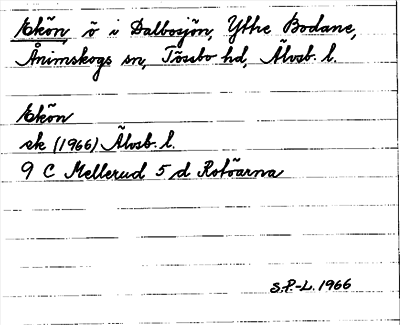 Ekön, ö i Dalbosjön, Yttre Bodane,
Ånimskogs sn, Tössbo hd, Älvsb. l.
Ekön
ek (1966) Älvsb. l.
9 C Mellerud 5 d Rotöarna
S.P.-L. 1966